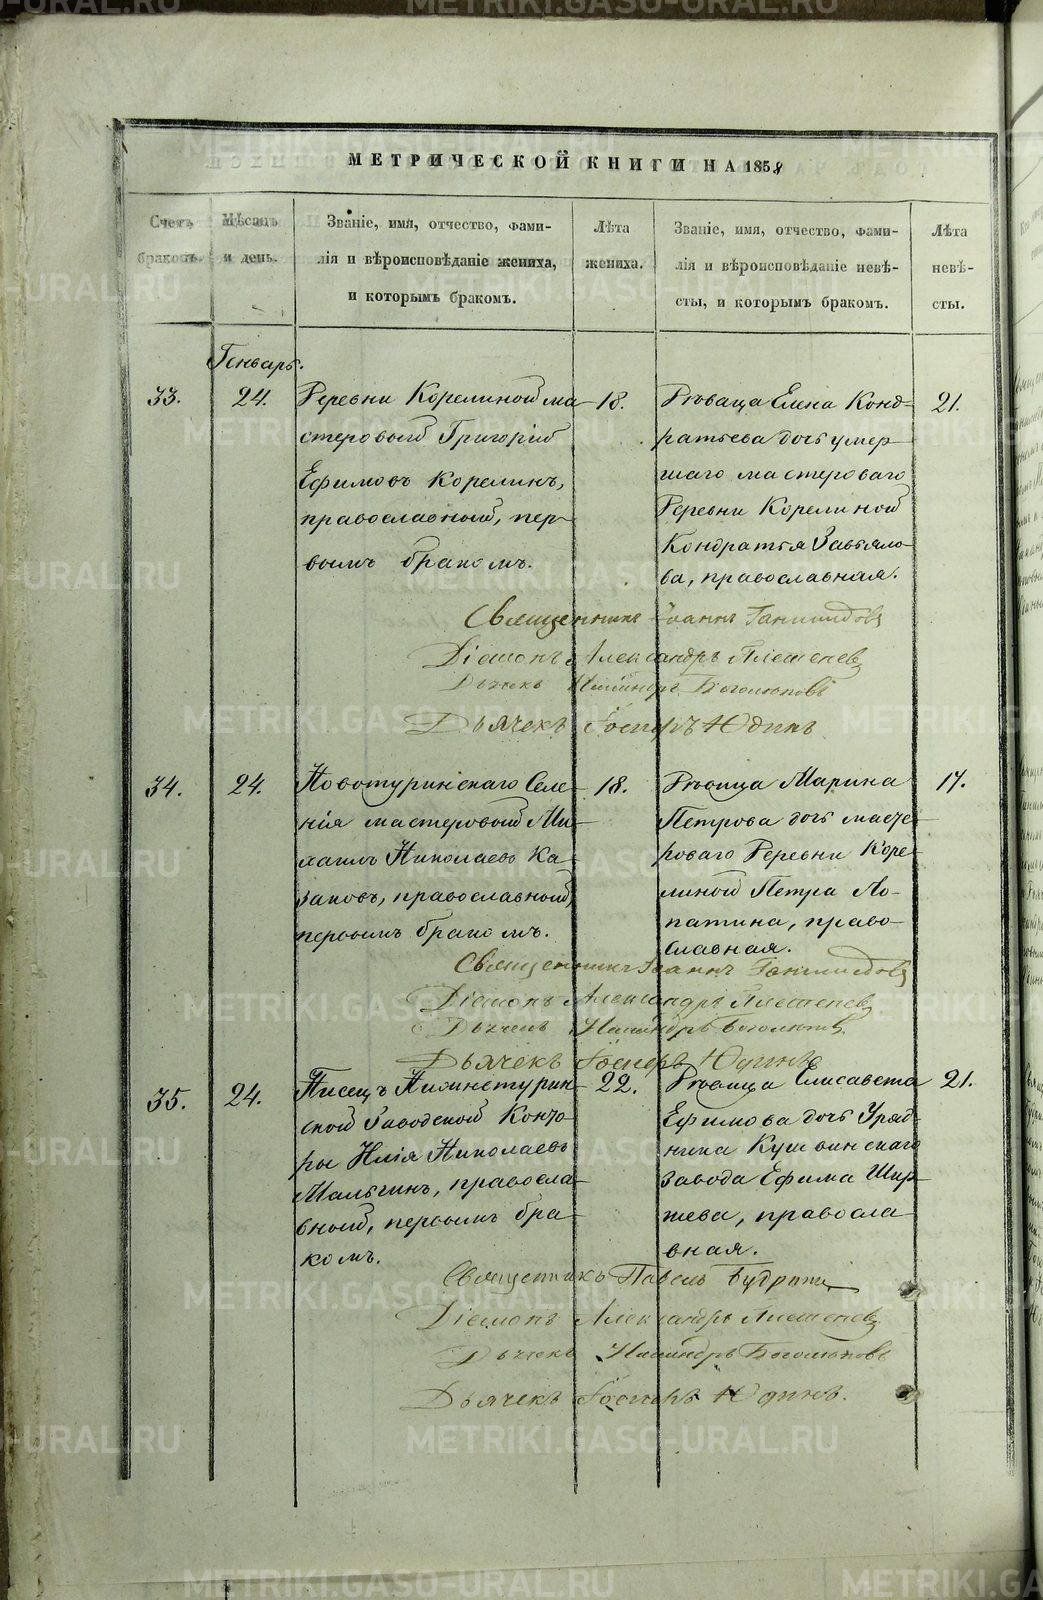 МЕТРИЧЕСКОЙ КНИГИ НА 1858
Счетъ браковъ.
Мѣсяцъ и день.
Званіе, имя, отчество, фами-
лія и вѣроисповѣданіе жениха,
и которымъ бракомъ.
Лѣта
жениха.
Званіе, имя, отчество, фами-
лія и вѣроисповѣданіе невѣ-
сты, и которымъ бракомъ.
Лѣта
невѣ-
сты.
Генварь.
33.
24.
Деревни Корелиной ма-
стеровый Григорій
Ефимовъ Корелинъ,
православный, пер-
вымъ бракомъ.
18.
Дѣвица Елена Конд-
ратьева дочь умер-
шаго мастероваго
Деревни Корелиной
Кондратья Завьяло-
ва, православная.
21.
Священникъ Іоаннъ
Діаконъ Александръ Плетеневъ
Дьячекъ Никандръ Боголюповъ
Дьячекъ Іосифъ Юдинъ
34.
24.
Новотуринскаго Селе-
нія мастеровый Ми-
хаилъ Николаевъ Ка-
заковъ, православный,
первымъ бракомъ.
18.
Дѣвица Марина
Петрова дочь масте-
роваго Деревни Коре-
линой Петра Ло-
патина, право-
славная.
17.
Священникъ Іоаннъ
Діаконъ Александръ Плетеневъ
Дьячекъ Никандръ Боголюповъ
Дьячекъ Іосифъ Юдинъ
35.
24.
Писецъ Нижнетурин-
ской Заводской Конто-
ры Илія Николаевъ
Мальгинъ, правосла-
вный, первымъ бра-
комъ.
22.
Дѣвица Елисавета
Ефимова дочь Уряд-
ника Кушвинскаго
завода Ефима Шир-
шева, правосла-
вная.
21.
Священникъ Павелъ
Діаконъ Александръ Плетеневъ
Дьячекъ Никандръ Боголюповъ
Дьячекъ Іосифъ Юдинъ.
METRIKI.GASO-URAL.RU